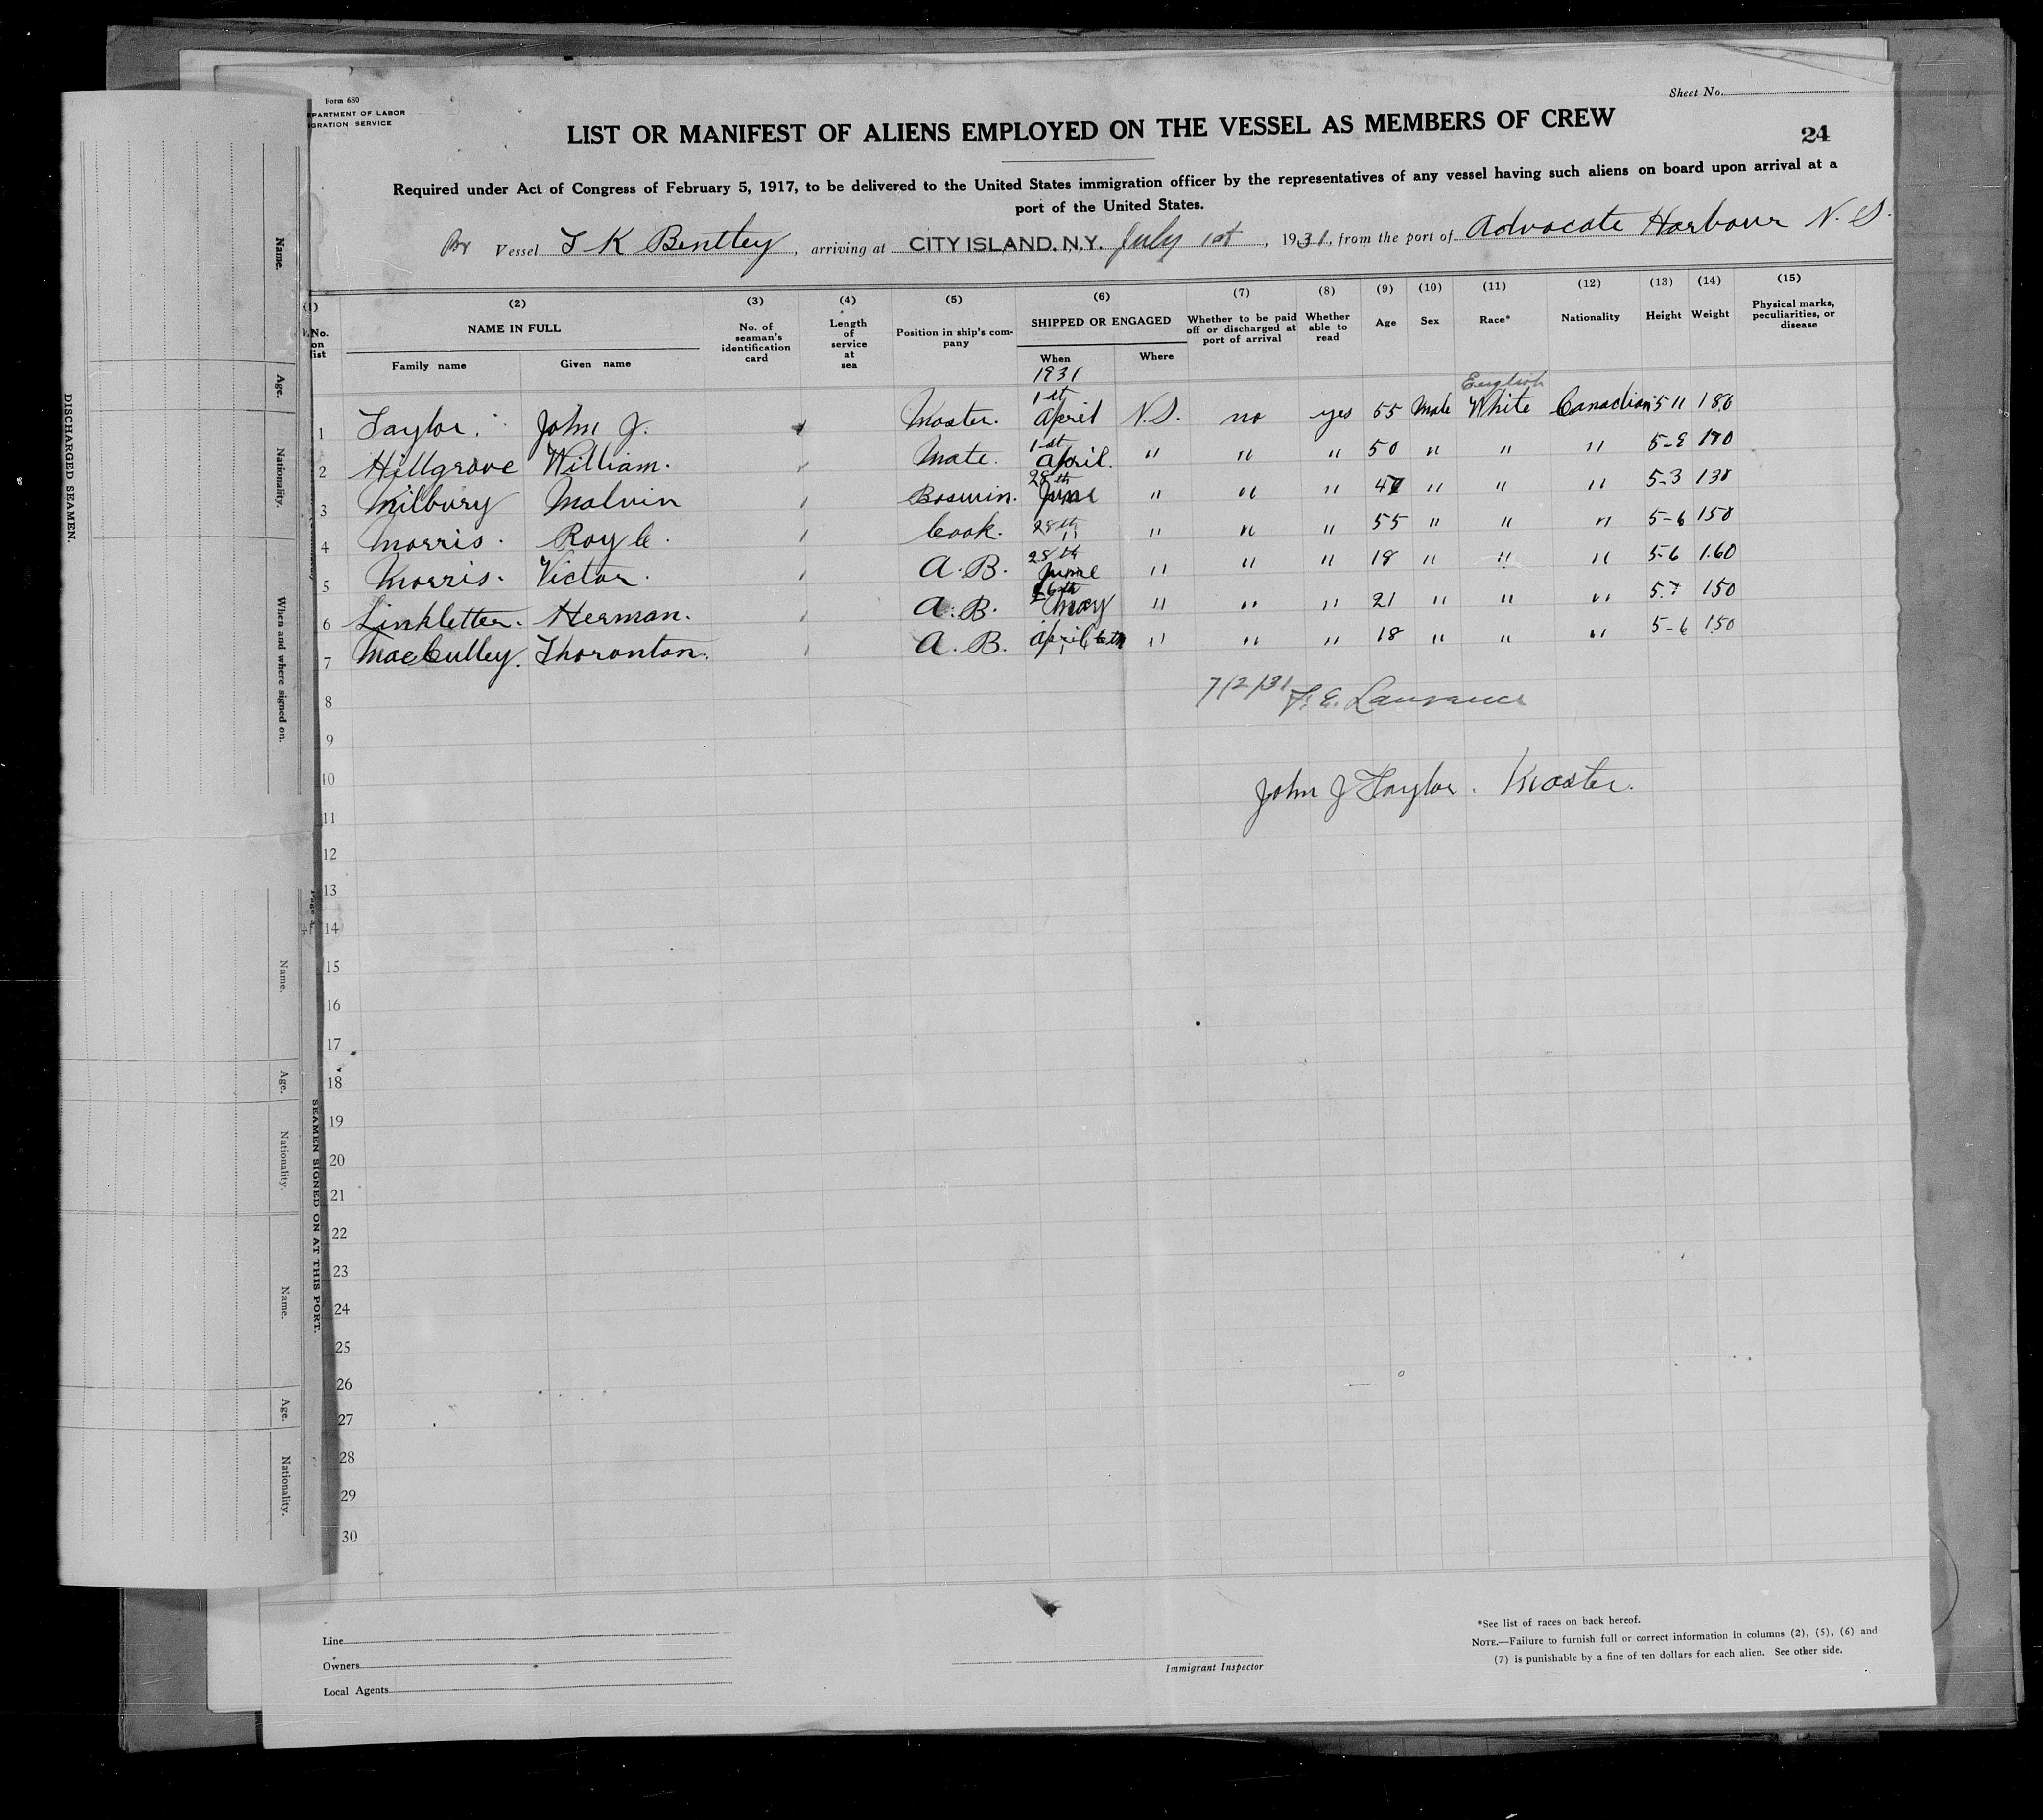 Form 680
EPARTMENT OF LABOR
IGRATION SERVICE
Sheet No.
LIST OR MANIFEST OF ALIENS EMPLOYED ON THE VESSEL AS MEMBERS OF CREW
24
Required under Act of Congress of February 5, 1917, to be delivered to the United States immigration officer by the representatives of any vessel having such aliens on board upon arrival at a
port of the United States.
Br Vessel T K Bentley, arriving at CITY ISLAND, N.Y. July 1st, 1931, from the port of Advocate Harbour N. S.
(1) (2) (3) (4) (5) (6) (7) (8) (9) (10) (11) (12) (13) (14) (15)
No. on list NAME IN FULL No. of seaman's identification card Length of service at sea Position in ship's company SHIPPED OR ENGAGED Whether to be paid off or discharged at port of arrival Whether able to read Age Sex Race* Nationality Height Weight Physical marks, peculiarities, or disease
Family name Given name When Where
1931
English
1 Taylor. John J. Master. 1st April N.S. no yes 55 Male White Canadian 5 11 180
2 Hillgrove William. Mate. 1st April. " " " 50 " " " 5-8 170
3 Milbury Malvin Boswin. 28th June " " " 47 " " " 5-3 138
4 Morris. Roy C. Cook. 28th " " " " 55 " " " 5-6 150
5 Morris. Victor. A. B. 28th June " " " 18 " " " 5-6 160
6 Linkletter. Herman. A. B. May " " " 21 " " " 5.7 150
7 MacCulley. Thoronton. A. B. April 6th " " " 18 " " " 5-6 150
8 7/2/31 F. E. Laurance
9
10 John J Taylor. Master.
11
12
13
14
15
16
17
18
19
20
21
22
23
24
25
26
27
28
29
30
Line
Owners
Local Agents
Immigrant Inspector
*See list of races on back hereof.
NOTE.—Failure to furnish full or correct information in columns (2), (5), (6) and
(7) is punishable by a fine of ten dollars for each alien. See other side.
DISCHARGED SEAMEN.
Name.
Age.
Nationality.
When and where signed on.
SEAMEN SIGNED ON AT THIS PORT.
Name.
Age.
Nationality.
Name.
Age.
Nationality.